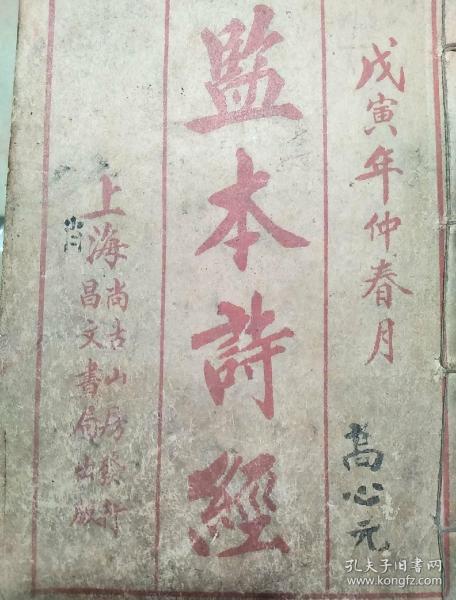 戊寅年仲春月
高心元
監本詩經
上海
尚古山房發行
昌文書局出版
孔夫子旧书网
www.kongfz.com